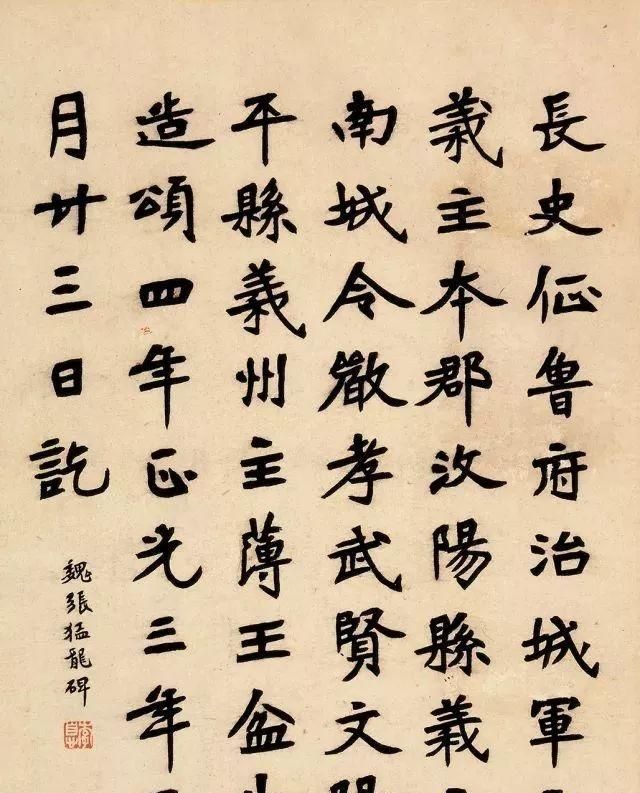 長史征魯府治城軍
義主本郡汶陽縣義
南城令徵孝武賢文
平縣義州主薄王盆
造頌四年正光三年
月廿三日訖
魏張猛龍碑